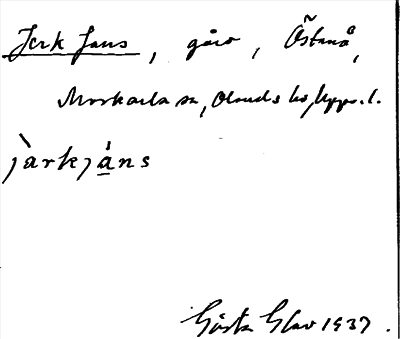 Jerk Jans, gård, Östanå,
Morkarla sn, Olands hd, Upps. l.
jàrkjáns
Gösta Glav 1937.